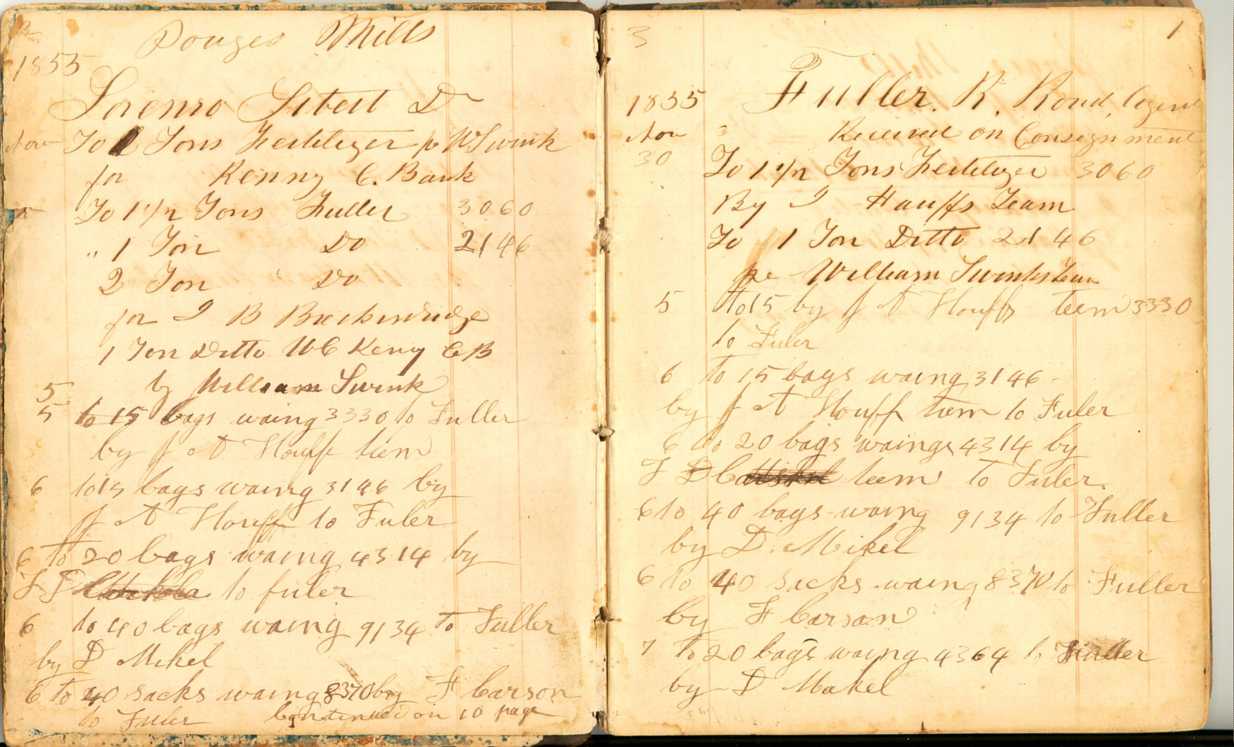 Mills
1855
Lorenzo Sibert Dr
Nov To 1 Tons Fertilizer p W Swink
for Kenny C. Bank
To 1 1/2 Tons Fuller 3060
" 1 Ton Do 2146
2 Ton Do
for J B Breckinridge
1 Ton Ditto W C Keny C B
by William Swink
5
5 to 15 bags waing 3330 to Fuller
by J A Houff tem
6 to 15 bags waing 3146 by
J A Houff to Fuler
6 to 20 bags waing 4314 by
to fuler
6 to 40 bags waing 9134 to Fuller
by D Mikel
6 to 40 sacks waing 8370 by F Carson
to Fuler Continued on 10 page
3 1
Fuller. R. Road, Agent
1855 Received on Consignment
Nov
30 To 1 1/2 Tons Fertilizer 3060
By J Hauffs Team
To 1 Ton Ditto 2146
pe William Swinks Team
5 to 15 by J A Houffs teem 3330
to Fuler
6 to 15 bags waing 3146
by J A Houff tem to Fuler
6 to 20 bags waings 4314 by
teem to Fuler.
6 to 40 bags waing 9134 to Fuller
by D. Mikel
6 to 40 sacks waing 8370 to Fuller
by F Carson
7 to 20 bags waing 4364 to Fuller
by D Makel